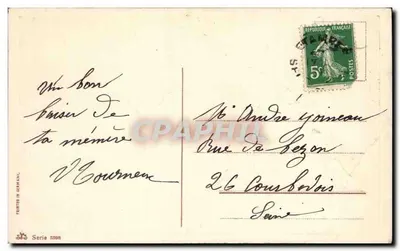 Un bon
baiser de
ta mémère
Mr André Goineau
Rue de Bezon
26 Courbevois
Seine
REPUBLIQUE FRANÇAISE
5c
POSTES
CPAPHIL.com
PRINTED IN GERMANY.
Serie